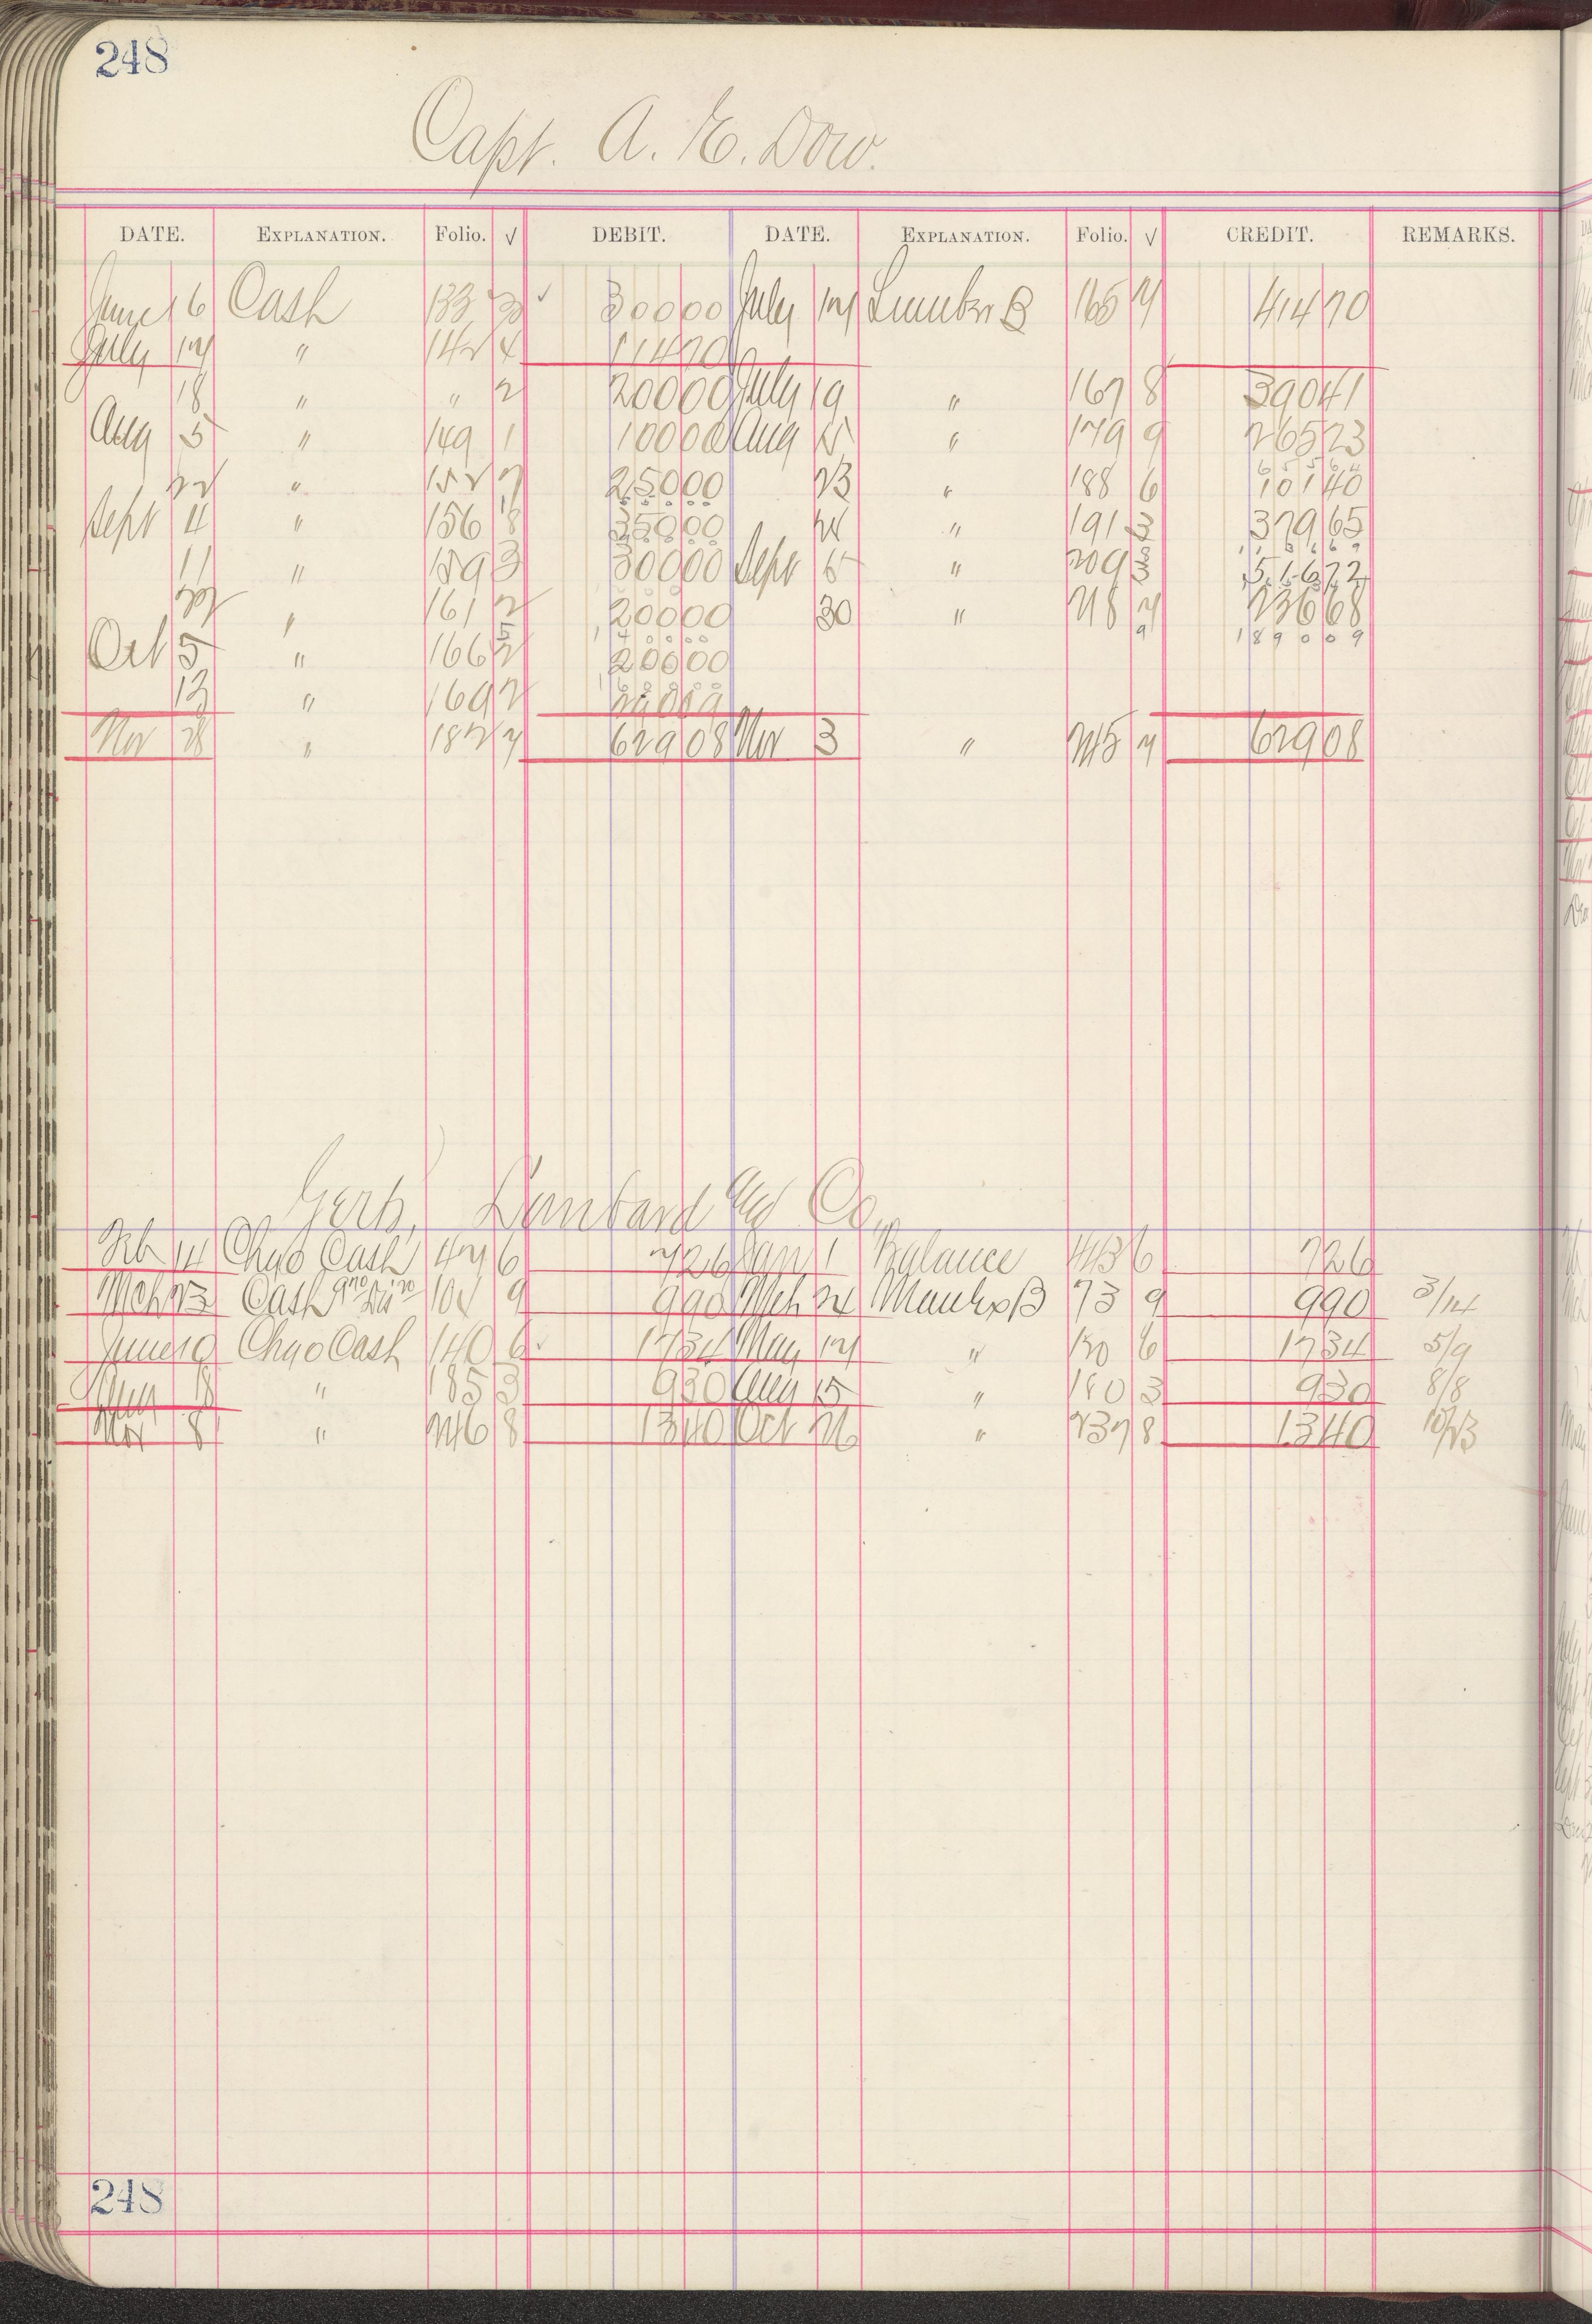 248
Capt. A. E. Dow.
DATE. EXPLANATION. Folio. √ DEBIT. DATE. EXPLANATION. Folio. √ CREDIT. REMARKS.
June 16 Cash 133 √ 300 00 July 17 Lumber B 165 7 414 70
July 17 " 142 4 114 70
18 " " 2 200 00 July 19 " 167 8 390 41
Aug 5 " 149 1 100 00 Aug 5 " 179 9 265 23
22 " 152 7 250 00 23 " 188 6 101 40
Sept 4 " 156 8 350 00 24 " 191 3 379 65
11 " 159 3 300 00 Sept 5 " 209 516 72
" 161 2 200 00 30 " 218 7 236 68
1890 09
Oct 5 " 166 2 200 00
13 " 169 2
Nov 28 " 182 7 629 08 Nov 3 " 245 7 629 08
Lombard and Co.
Feb 14 Chgo Cash 47 6 7 26 Jan 1 Balance 443 6 7 26
Mch 23 Cash 104 9 9 90 Mch 24 73 9 9 90 3/14
June 19 Chgo Cash 140 6 17 34 May 17 " 130 6 17 34 5/9
Aug 18 " 185 3 9 30 Aug 15 " 180 3 9 30 8/8
Nov 8 " 246 8 13 40 Oct 26 " 237 8 13 40 10/23
248